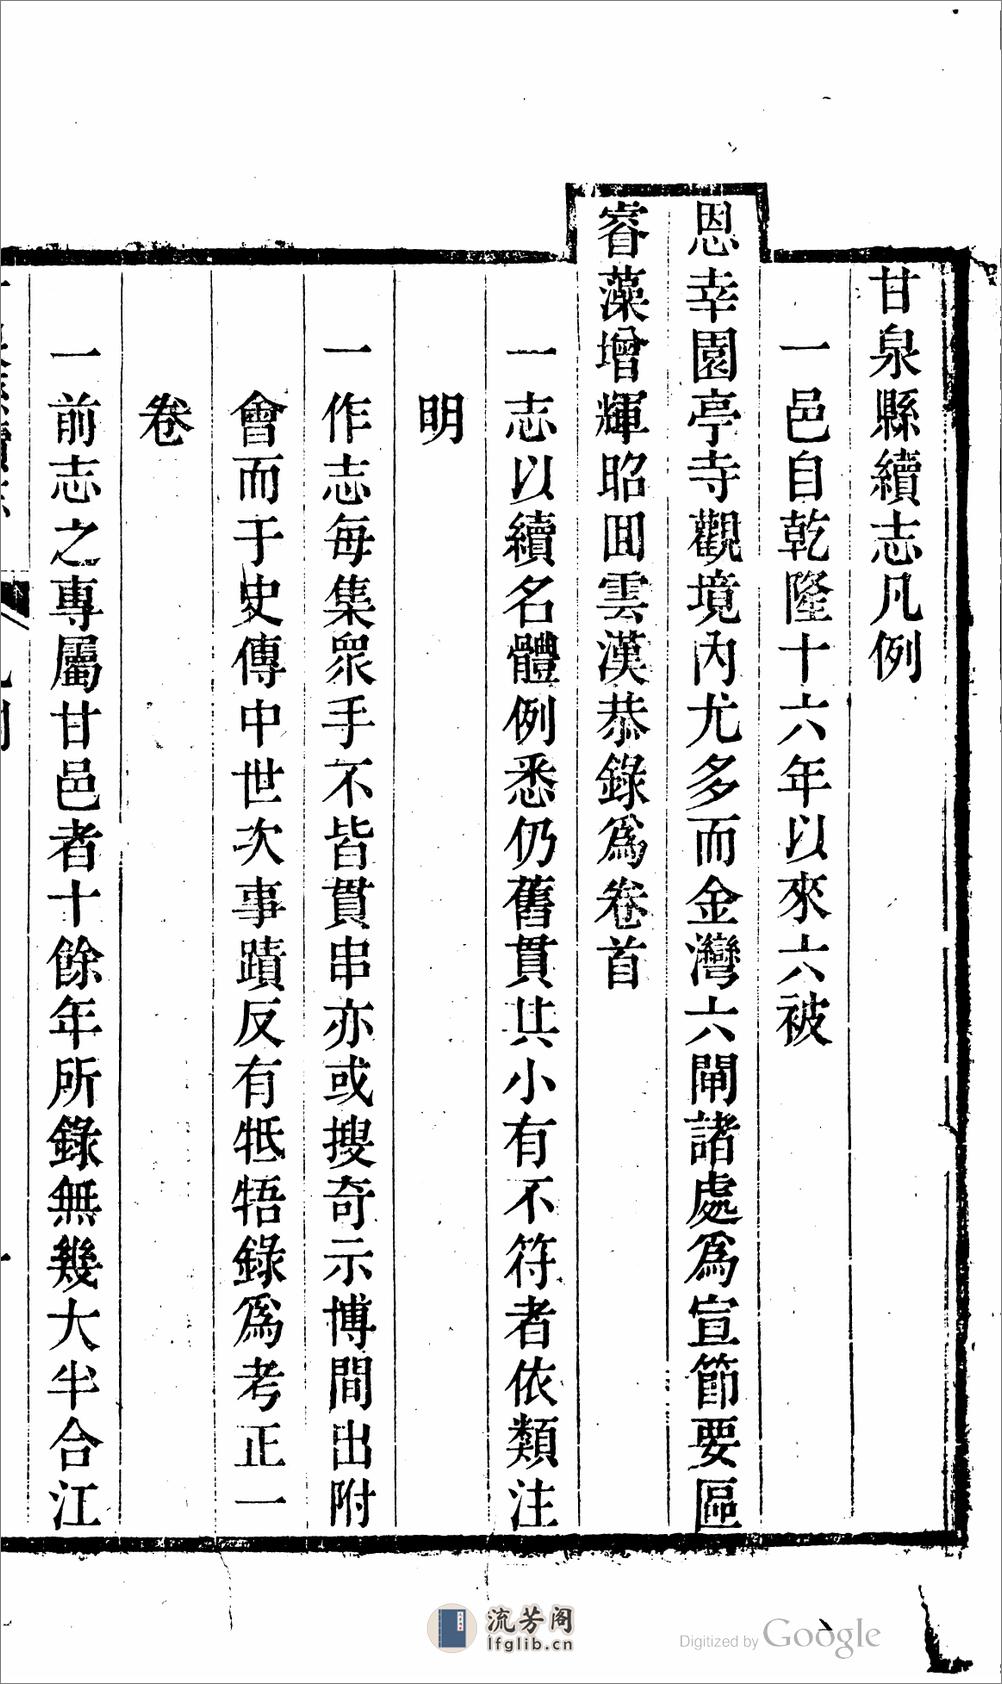 甘泉縣續志凡例
一邑自乾隆十六年以來六被
恩幸園亭寺觀境內尤多而金灣六閘諸處爲宣節要區
睿藻增輝昭回雲漢恭錄爲卷首
一志以續名體例悉仍舊貫其小有不符者依類注
明
一作志每集眾手不皆貫串亦或搜奇示博間出附
會而于史傳中世次事蹟反有牴牾錄爲考正一
卷
一前志之專屬甘邑者十餘年所錄無幾大半合江
流芳阁
lfglib.cn
Digitized by Google